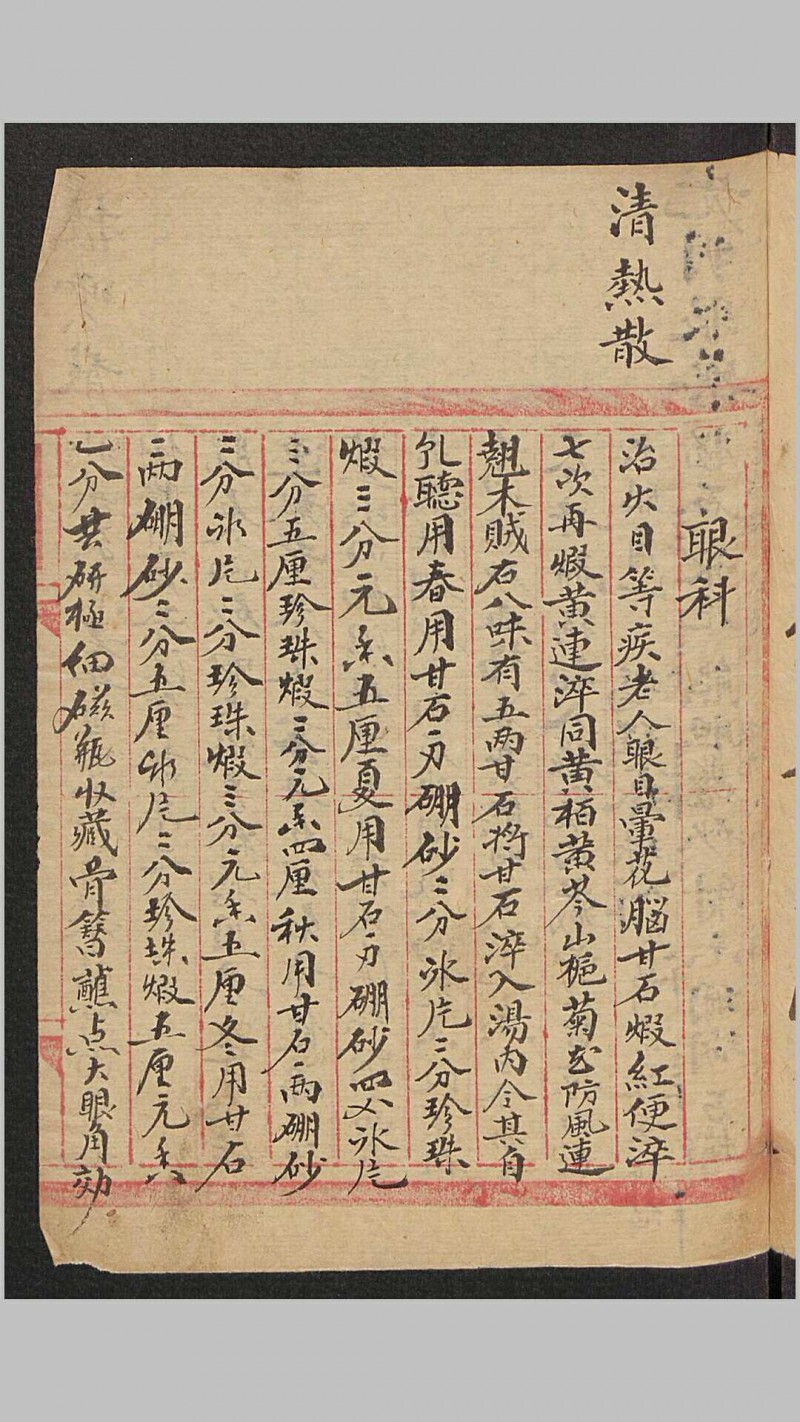 清熱散
眼科
治火目等疾老人眼目暈花腦甘石煅紅便淬
七次再煅黃連淬同黃栢黃芩山梔菊花防風連
翹木賊石八味有五兩甘石将甘石淬入湯內令其自
乳聽用春用甘石一刃硼砂二分氷片二分珍珠
煅三分元香五厘夏用甘石一刃硼砂四分氷片
三分五厘珍珠煅二分元香四厘秋用甘石一兩硼砂
三分氷片二分珍珠煅三分元香五厘冬用甘石
一兩硼砂二分五厘氷片二分珍珠煅五厘元香
一分共研極細磁瓶收藏骨簪蘸点大眼角効